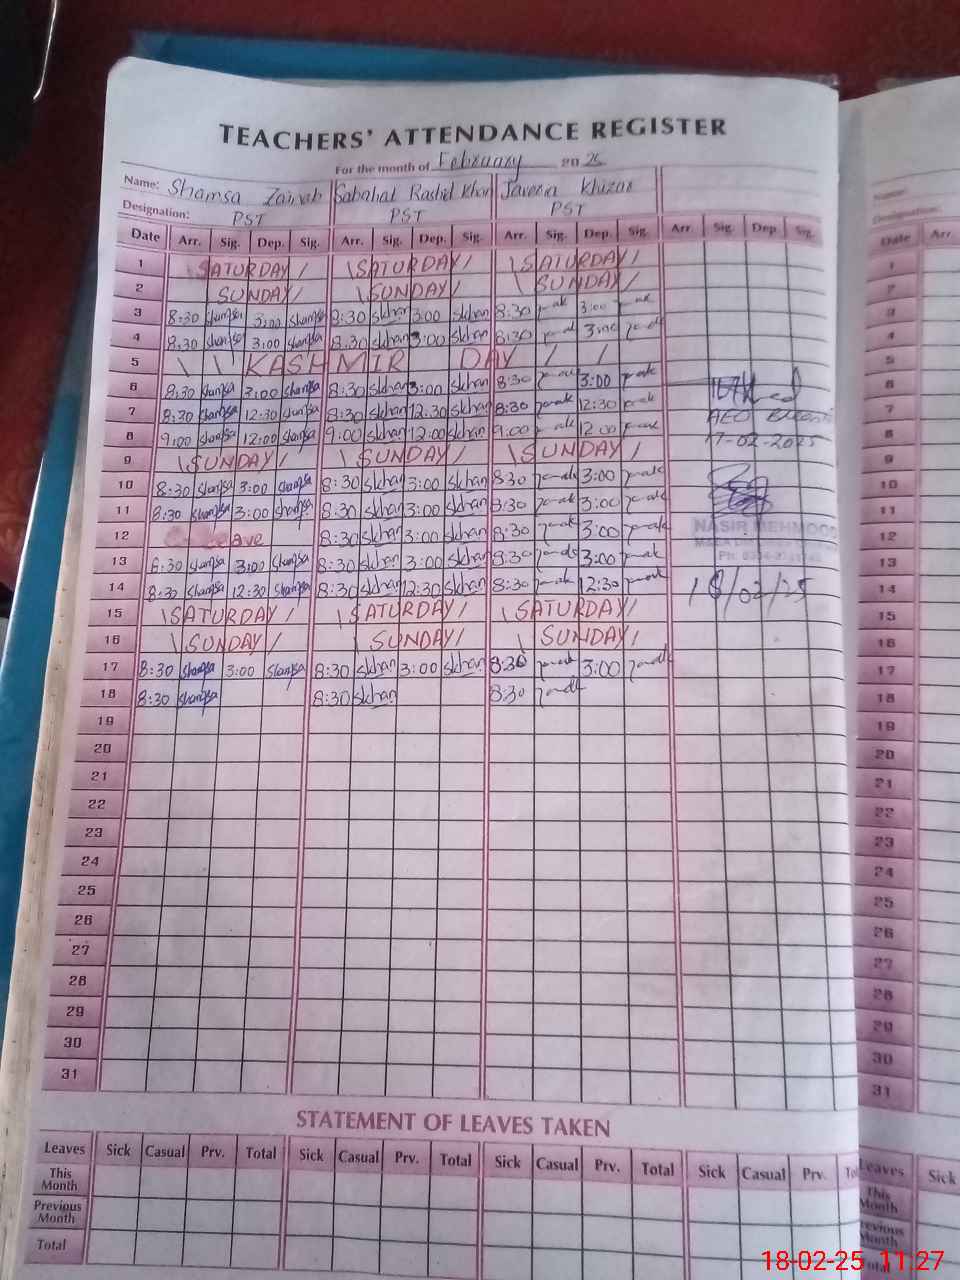 TEACHERS' ATTENDANCE REGISTER
For the month of February 20 25
Name: Shamsa Zainab Sabahat Rashid Khan Javeria Khizar
Designation: PST PST PST
Date Arr. Sig. Dep. Sig. Arr. Sig. Dep. Sig. Arr. Sig. Dep. Sig. Arr Sig. Dep. Sig.
1 SATURDAY SATURDAY SATURDAY
2 SUNDAY SUNDAY SUNDAY
3 8:30 Shamsa 3:00 Shamsa 8:30 skhan 3:00 skhan 8:30 3:00
4 8:30 Shamsa 3:00 Shamsa 8:30 skhan 3:00 skhan 8:30 3:00
5 KASHMIR DAY
6 8:30 Shamsa 3:00 Shamsa 8:30 skhan 3:00 skhan 8:30 3:00
7 8:30 Shamsa 12:30 Shamsa 8:30 skhan 12:30 skhan 8:30 12:30 AEO
8 9:00 Shamsa 12:00 Shamsa 9:00 skhan 12:00 skhan 9:00 12:00 17-02-2025
9 SUNDAY SUNDAY SUNDAY
10 8:30 Shamsa 3:00 Shamsa 8:30 skhan 3:00 skhan 8:30 3:00
11 8:30 Shamsa 3:00 Shamsa 8:30 skhan 3:00 skhan 8:30 3:00
12 Leave 8:30 skhan 3:00 skhan 8:30 3:00 NASIR MEHMOOD
13 8:30 Shamsa 3:00 Shamsa 8:30 skhan 3:00 skhan 8:30 3:00
14 8:30 Shamsa 12:30 Shamsa 8:30 skhan 12:30 skhan 8:30 12:30 18/02/25
15 SATURDAY SATURDAY SATURDAY
16 SUNDAY SUNDAY SUNDAY
17 8:30 Shamsa 3:00 Shamsa 8:30 skhan 3:00 skhan 8:30 3:00
18 8:30 Shamsa 8:30 skhan 8:30
19
20
21
22
23
24
25
26
27
28
29
30
31
STATEMENT OF LEAVES TAKEN
Leaves Sick Casual Prv. Total Sick Casual Prv. Total Sick Casual Prv. Total Sick Casual Prv.
This Month
Previous Month
Total
Date Arr.
1
2
3
4
5
6
7
8
9
10
11
12
13
14
15
16
17
18
19
20
21
22
23
24
25
26
27
28
29
30
31
Leaves Sick
This Month
Previous Month
Total
18-02-25 11:27